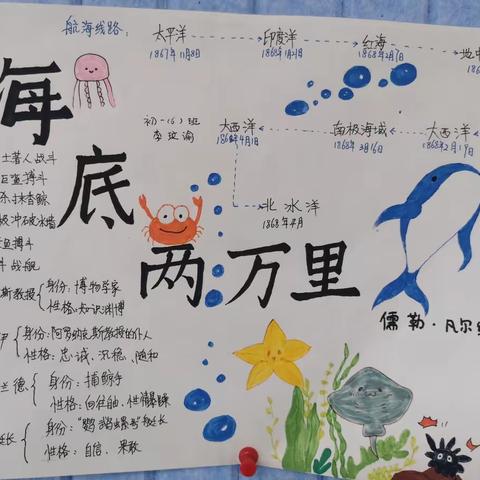 航海线路:
太平洋
1867年11月8日
印度洋
1868年1月21日
红海
1868年2月7日
地中
186
大西洋
1868年2月19日
南极海域
1868年3月16日
大西洋
1868年4月1日
北冰洋
1868年4月
初一(6)班
李玟谕
海
底
两万里
儒勒·凡尔
土著人战斗
巨鲨搏斗
杀抹香鲸
极冲破冰墙
鱼搏斗
斗战舰
斯教授
身份:博物学家
性格:知识渊博
身份:阿罗纳克斯教授的仆人
性格:忠诚、沉稳、随和
兰德
身份:捕鲸手
性格:向往自由、性情暴躁
艇长
身份:“鹦鹉螺号”艇长
性格:自信、果敢